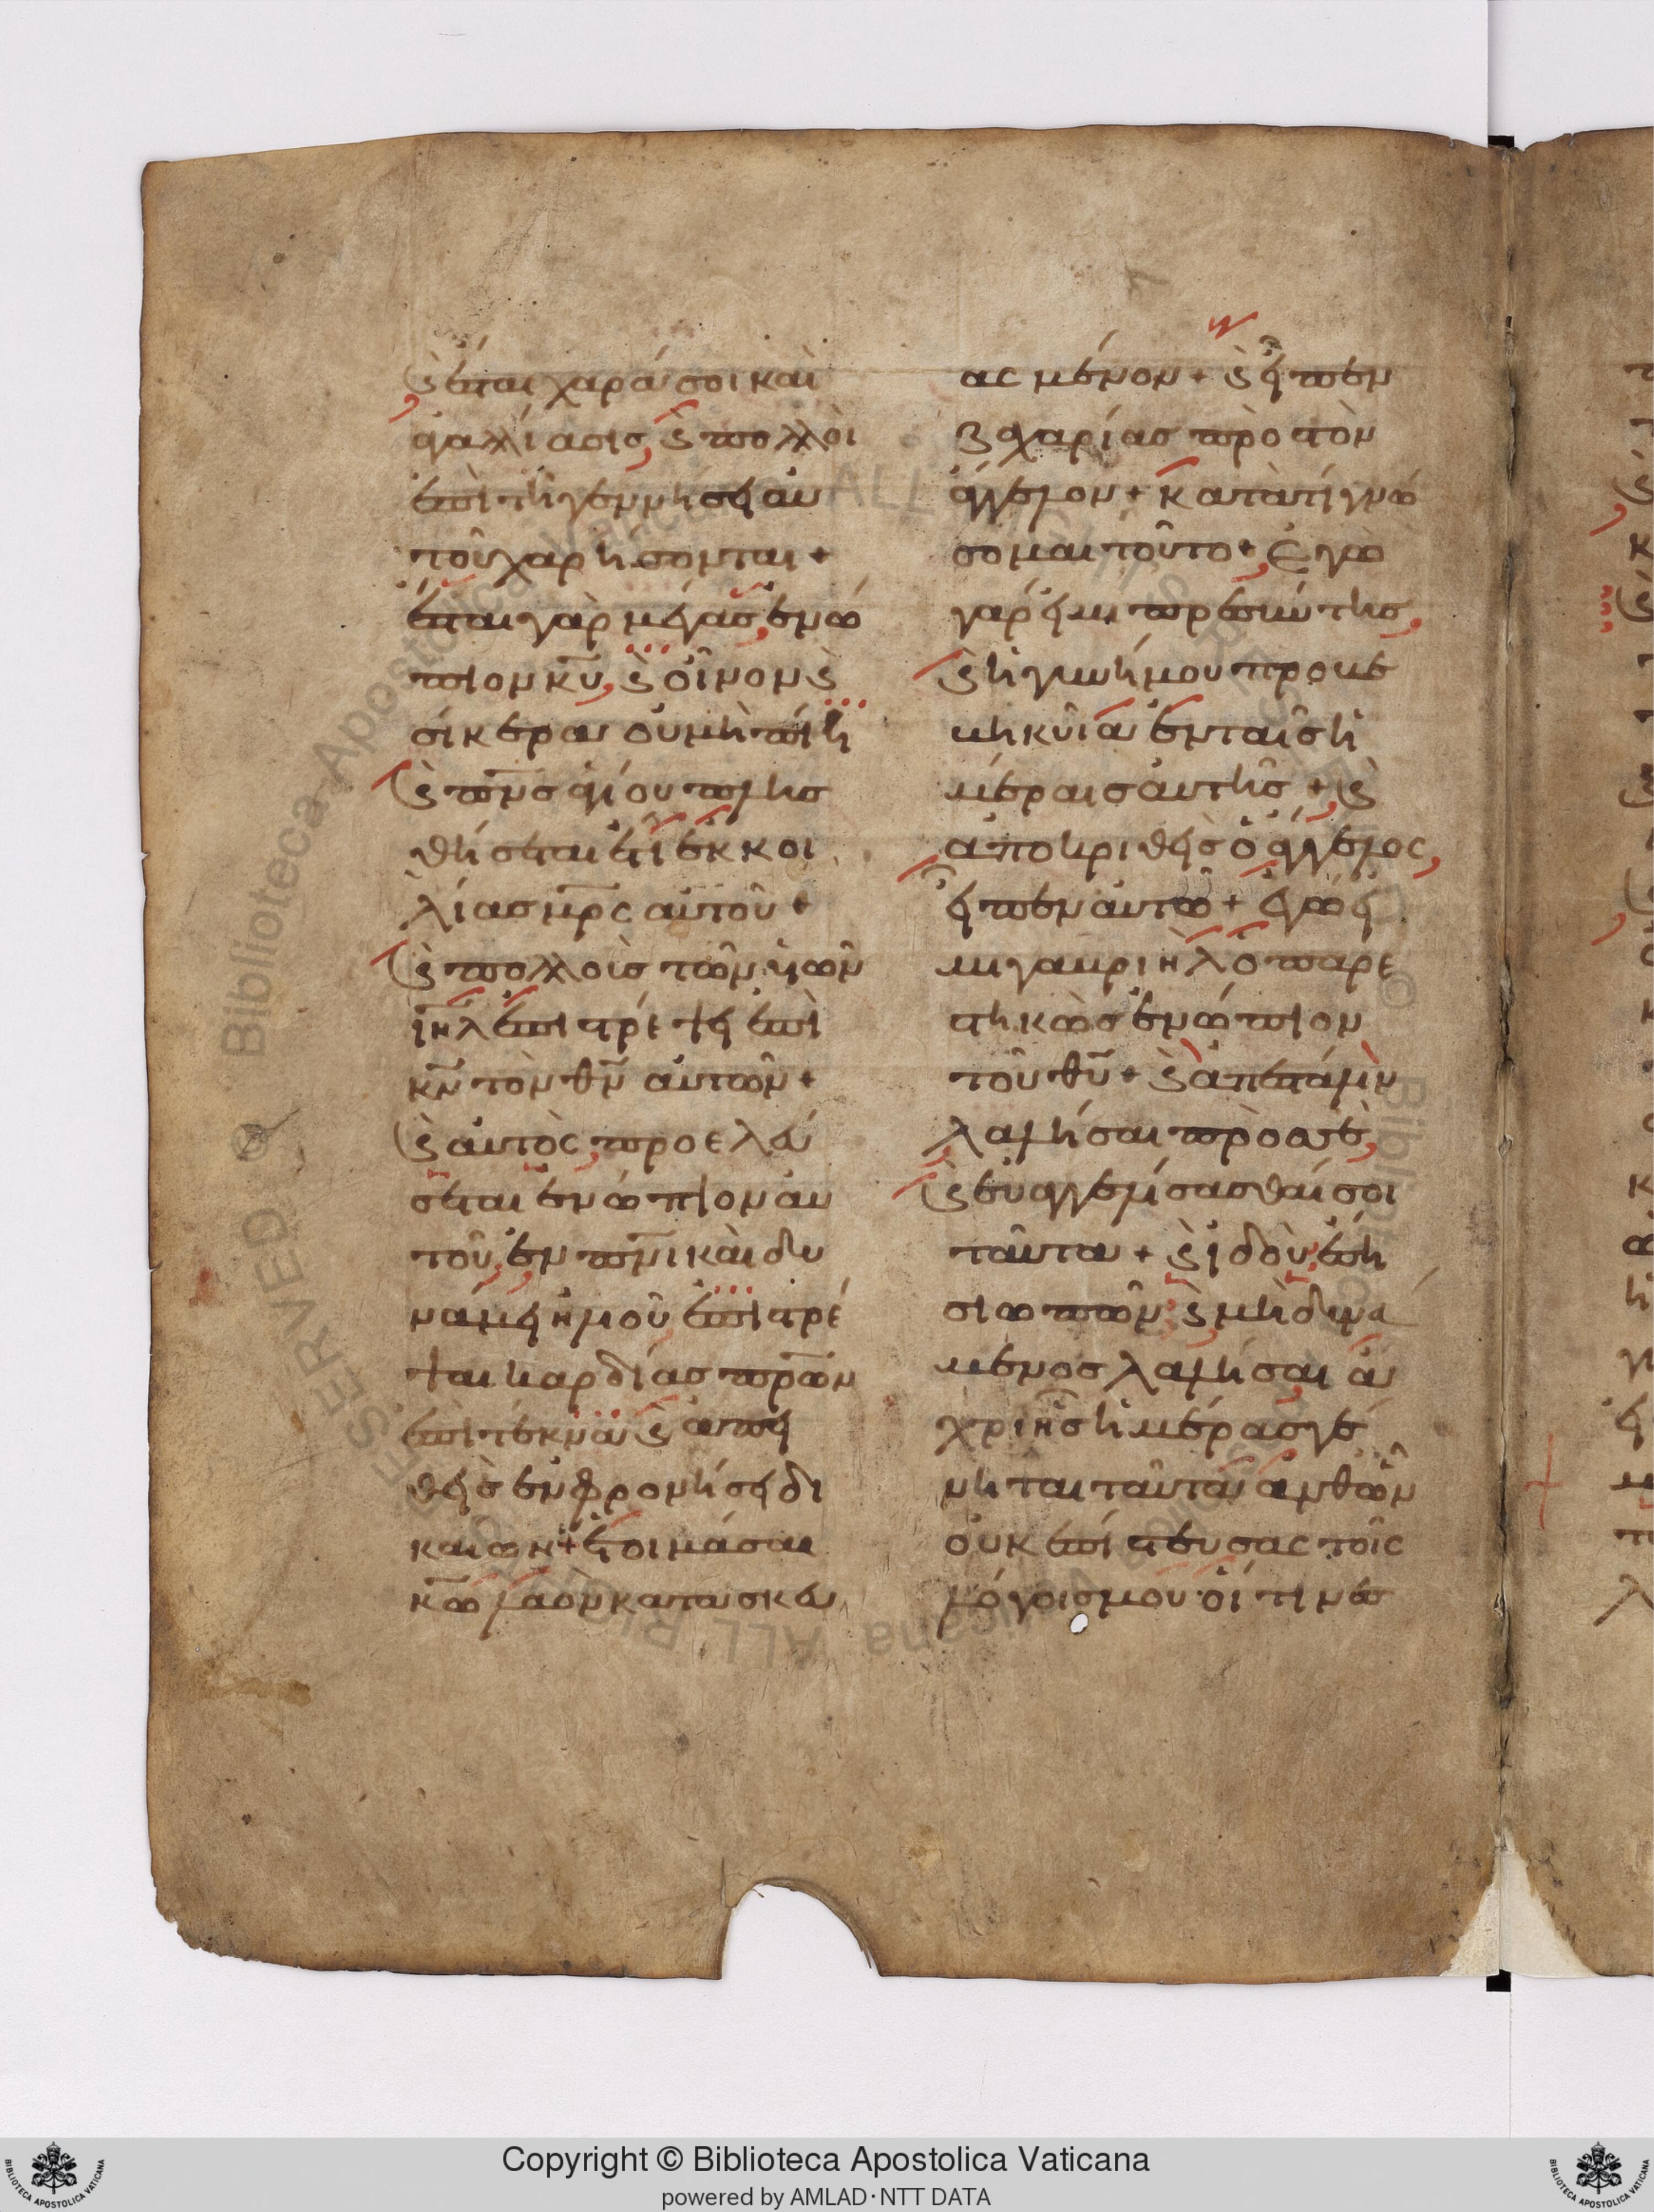 ϛ̀ ἔσται χαρά σοι καὶ
ἀγαλλίασις, ϛ̀ πολλοὶ
ἐπὶ τῆ γεννήσει αὐ
τοῦ χαρήσονται +
ἔσται γὰρ μέγας ἐνώ
πιον κ̅υ̅, ϛ̀ οἶνον ϛ̀
σίκερα οὐ μὴ πίη
ϛ̀ π̅ν̅ς ἁγίου πλησ
θήσεται ἔτι ἐκ κοι
λίας μ̅ρ̅ς αὐτοῦ +
ϛ̀ πολλοὺς τῶν υἱῶν
ι̅η̅λ ἐπιστρέψει ἐπὶ
κ̅ν̅ τὸν θ̅ν̅ αὐτῶν +
ϛ̀ αὐτὸς προελεύ
σεται ἐνώπιον αὐ
τοῦ, ἐν π̅ν̅ι καὶ δυ
νάμει ἡλιοῦ ἐπιστρέ
ψαι καρδίας π̅ρ̅ων
ἐπὶ τέκνα ϛ̀ ἀπει
θεῖς ἐν φρονήσει δι
καίων + ἑτοιμάσαι
κ̅ω̅ λαὸν κατασκευ
ασμένον + ϛ̀ εἶπεν
ζαχαρίας πρὸς τὸν
ἄγγελον + κατὰ τί γνώ
σομαι τοῦτο + ἐγὼ
γάρ εἰμι πρεσβύτης,
ϛ̀ ἡ γυνή μου προβε
βηκυῖα ἐν ταῖς ἡ
μέραις αὐτῆς +, ϛ̀
ἀποκριθεὶς ὁ ἄγγελος,
εἶπεν αὐτῶ + ἐγώ εἰ
μι γαβριὴλ ὁ παρε
στηκὼς ἐνώπιον
τοῦ θ̅υ̅ + ϛ̀ ἀπεστάλην
λαλῆσαι πρὸς σὲ,
ϛ̀ εὐαγγελίσασθαί σοι
ταῦτα + ϛ̀ ἰδοὺ ἔση
σιωπῶν ϛ̀ μὴ δυνά
μενος λαλῆσαι ἄ
χρι ἧς ἡμέρας γέ
νηται ταῦτα ἀνθῶν
οὐκ ἐπίστευσας τοῖς
λόγοις μου οἵτινες